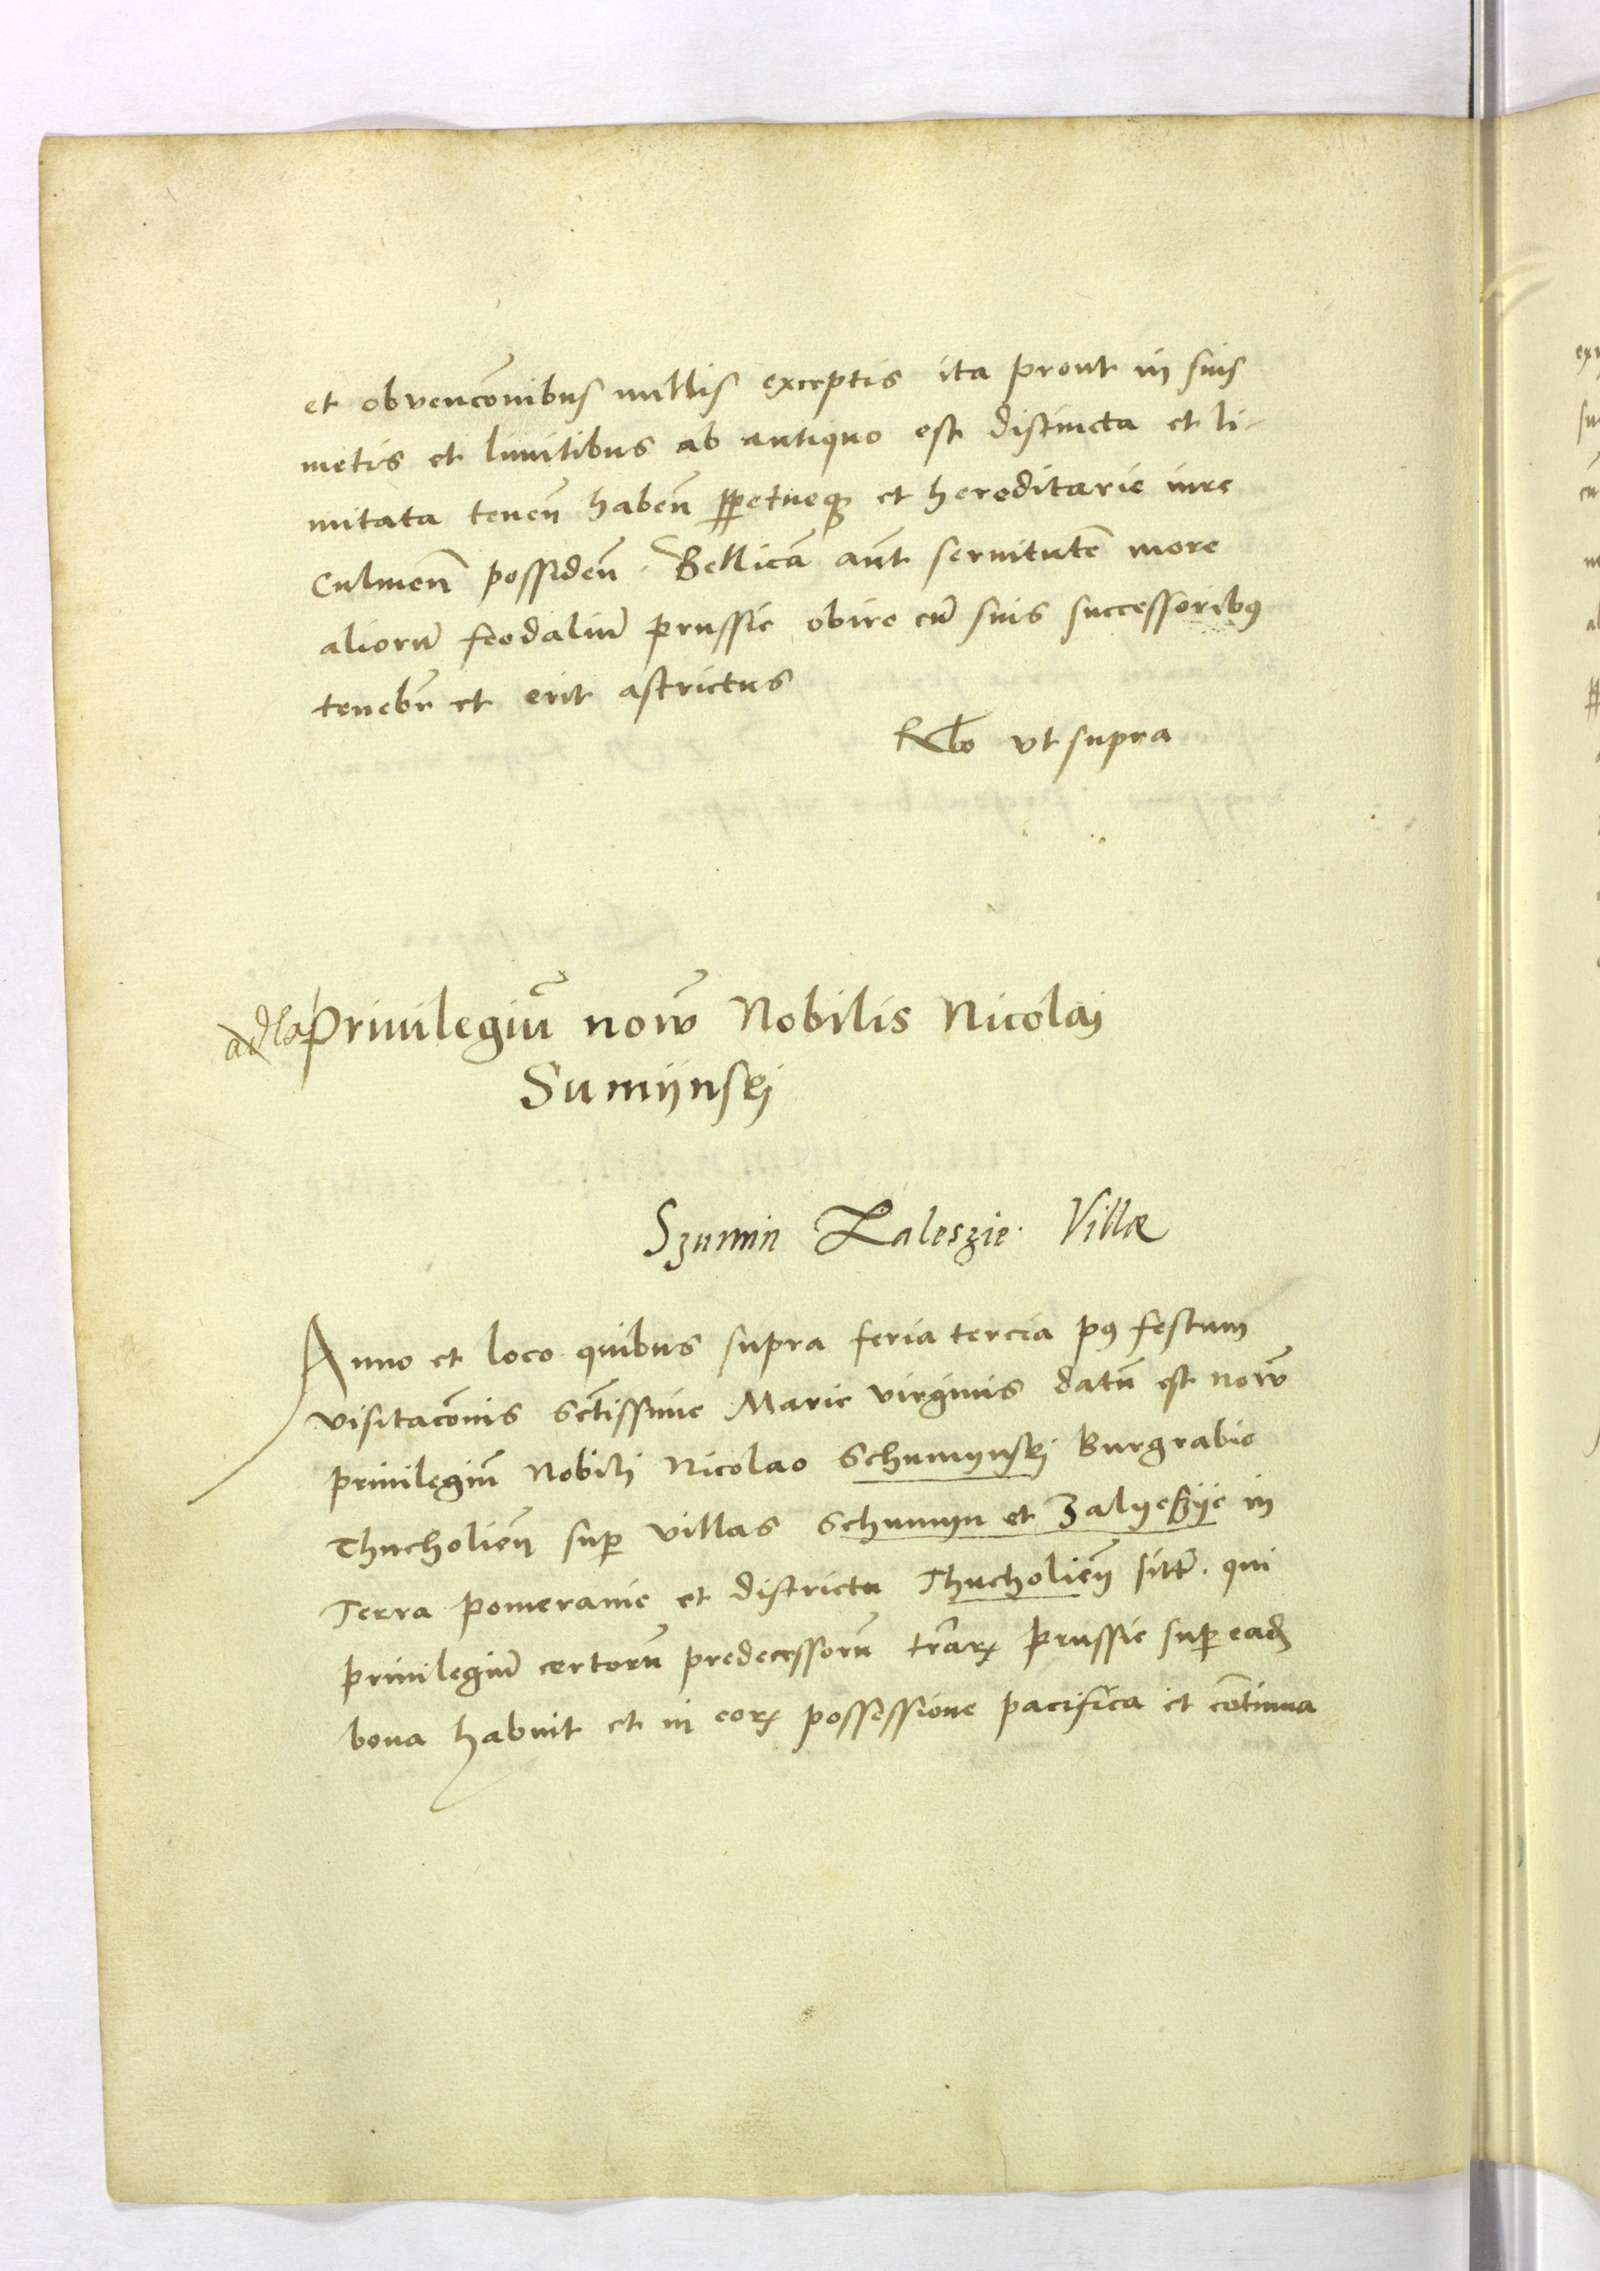 et obvencōnibus nullis exceptis ita prout in suis
metis et limitibus ab antiquo est distincta et li-
mitata teneñ habeñ ꝑpetueqꝫ et hereditarie iure
Culmeñ possideñ. Bellicā aūt seruitutē more
aliorū feodaliū prussie obire cū suis successoribꝰ
tenebr̄ et erit astrictus
Rlō vt supra
Priuilegiū nouū Nobilis Nicolaj
Sumijnskj
Szumin Zaleszie Villæ
Anno et loco quibus supra feria tercia pꝰ festum
visitacōnis Sctīssime Marie virginis datū est nouū
priuilegiū Nobili Nicolao Schumynskj Burgrabio
Thucholieñ suꝑ villas Schumyn et Zalyeszye in
Terra pomeranie et districtu Thucholieñ sitt̄. qui
priuilegiū certorū predecessorū tr̄arꝝ prussie suꝑ eadē
bona habuit et in eorꝝ possessione pacifica et cōtinua